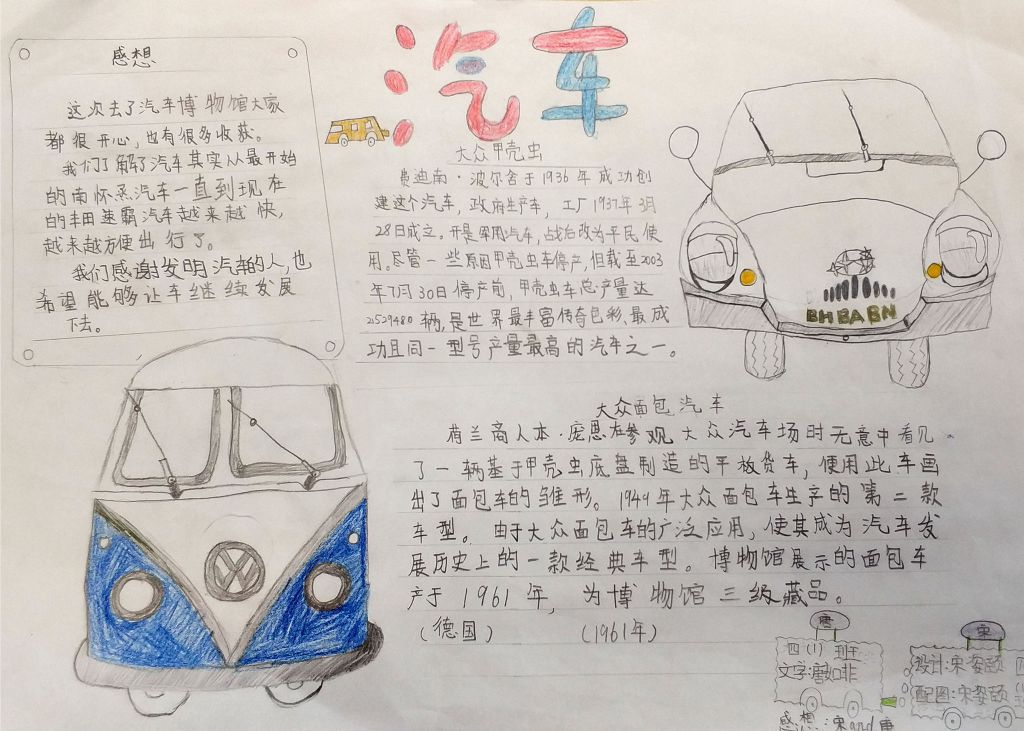 汽车
感想
这次去了汽车博物馆大家
都很开心,也有很多收获。
我们了解了汽车其实从最开始
的南怀仁蒸汽车一直到现在
的丰田速霸汽车越来越快,
越来越方便出行了。
我们感谢发明汽车的人,也
希望能够让车继续发展
下去。
大众甲壳虫
费迪南·波尔舍于1936年成功创
建这个汽车,政府生产车,工厂1937年3月
28日成立。开是军用汽车,战后改为平民使
用。尽管一些原因甲壳虫车停产,但截至2003
年7月30日停产前,甲壳虫车总产量达
21529480辆,是世界最丰富传奇色彩、最成
功且同一型号产量最高的汽车之一。
BHBABN
大众面包汽车
荷兰商人本·庞恩在参观大众汽车场时无意中看见
了一辆基于甲壳虫底盘制造的平放货车,便用此车画
出了面包车的雏形。1949年大众面包车生产的第二款
车型。由于大众面包车的广泛应用,使其成为汽车发
展历史上的一款经典车型。博物馆展示的面包车
产于1961年,为博物馆三级藏品。
(德国) (1961年)
唐
四(1)班
文字:唐如非
宋
设计:宋姿颐
配图:宋姿颐
感想:宋and唐